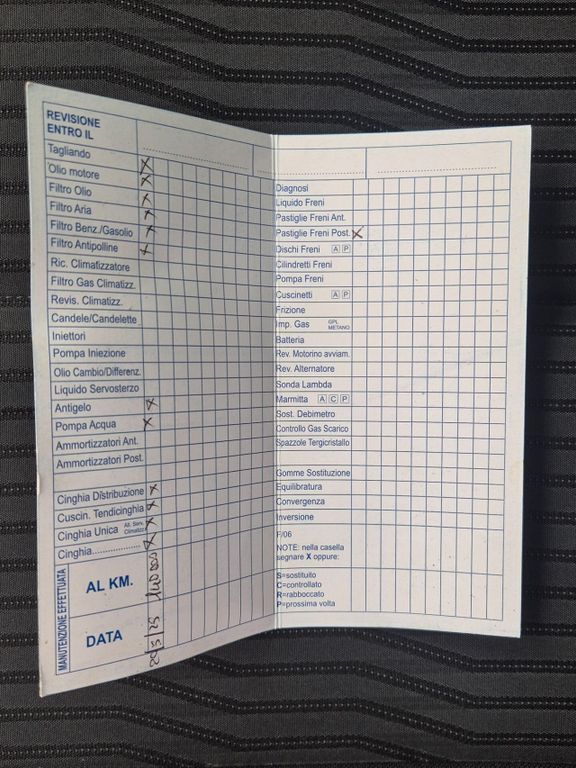 REVISIONE
ENTRO IL
Tagliando
Olio motore X
Filtro Olio X
Filtro Aria X
Filtro Benz./Gasolio X
Filtro Antipolline X
Ric. Climatizzatore
Filtro Gas Climatizz.
Revis. Climatizz.
Candele/Candelette
Iniettori
Pompa Iniezione
Olio Cambio/Differenz.
Liquido Servosterzo
Antigelo X
Pompa Acqua X
Ammortizzatori Ant.
Ammortizzatori Post.
Cinghia Distribuzione X
Cuscin. Tendicinghia X
Cinghia Unica Alt. Serv. Climatizz. X
Cinghia................... X
MANUTENZIONE EFFETTUATA
AL KM.
DATA
Diagnosi
Liquido Freni
Pastiglie Freni Ant.
Pastiglie Freni Post. X
Dischi Freni A P
Cilindretti Freni
Pompa Freni
Cuscinetti A P
Frizione
Imp. Gas GPL METANO
Batteria
Rev. Motorino avviam.
Rev. Alternatore
Sonda Lambda
Marmitta A C P
Sost. Debimetro
Controllo Gas Scarico
Spazzole Tergicristallo
Gomme Sostituzione
Equilibratura
Convergenza
Inversione
F/06
NOTE: nella casella
segnare X oppure:
S=sostituito
C=controllato
R=rabboccato
P=prossima volta